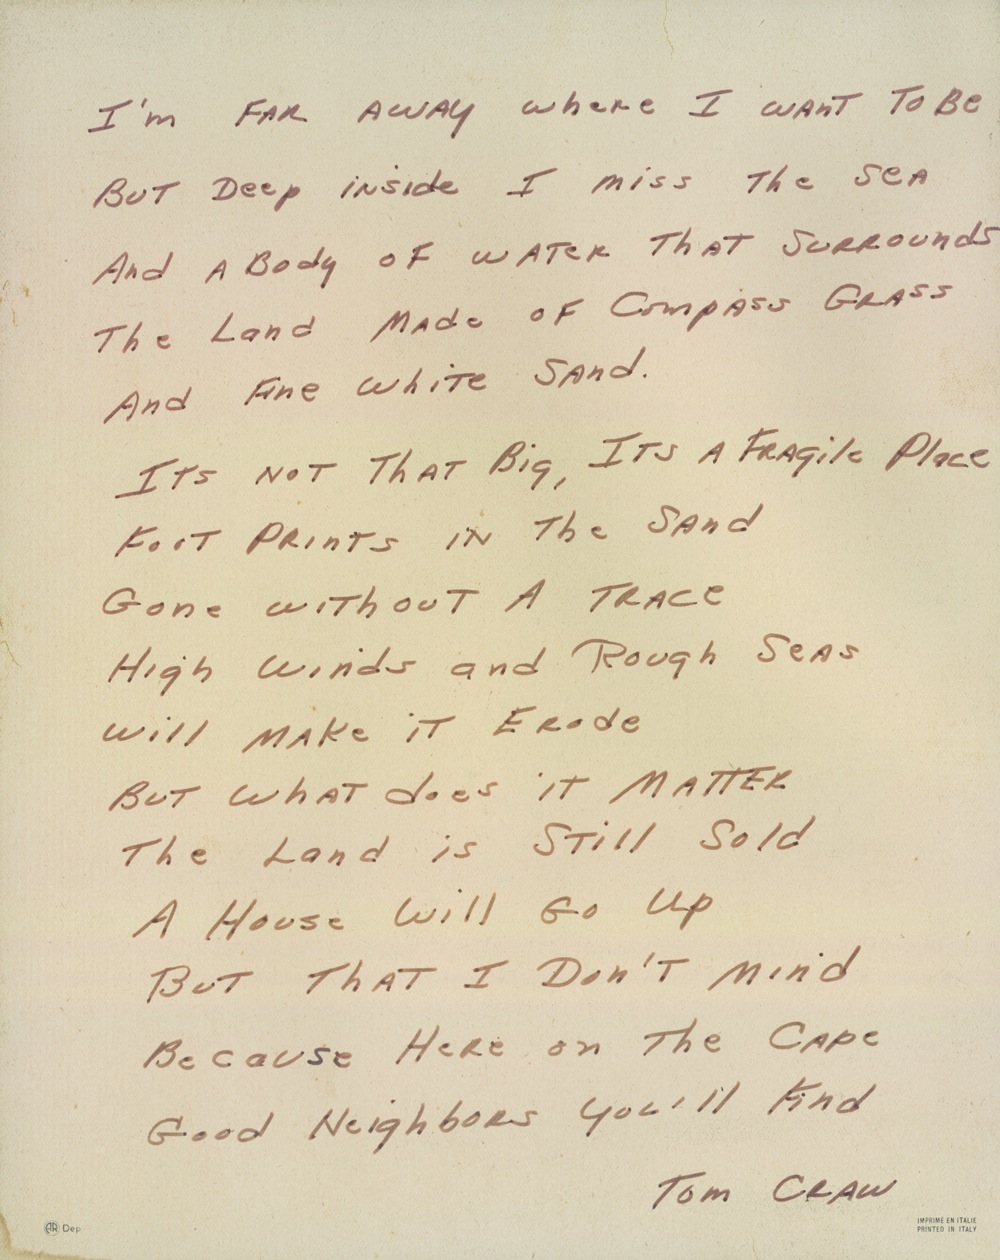 I'm FAR AWAY where I WANT TO Be
But Deep inside I miss The SeA
And A Body of WATeR ThaT SuRROunds
The Land Made of Compass GRASS
And Fine WhiTe SAnd.
ITs NOT ThaT Big, ITs A FRAgile Place
FooT PRinTs iN The SAnd
Gone wiThouT A TRACe
High Winds and Rough SeAs
Will MAKe iT ERode
BuT WhAT does iT MATTER
The Land is STill Sold
A House Will Go Up
BuT ThAT I Don'T Mind
Because HeRe on The CApe
Good NeighboRs you'll Find
Tom CRAW
AR Dep
IMPRIME EN ITALIE
PRINTED IN ITALY